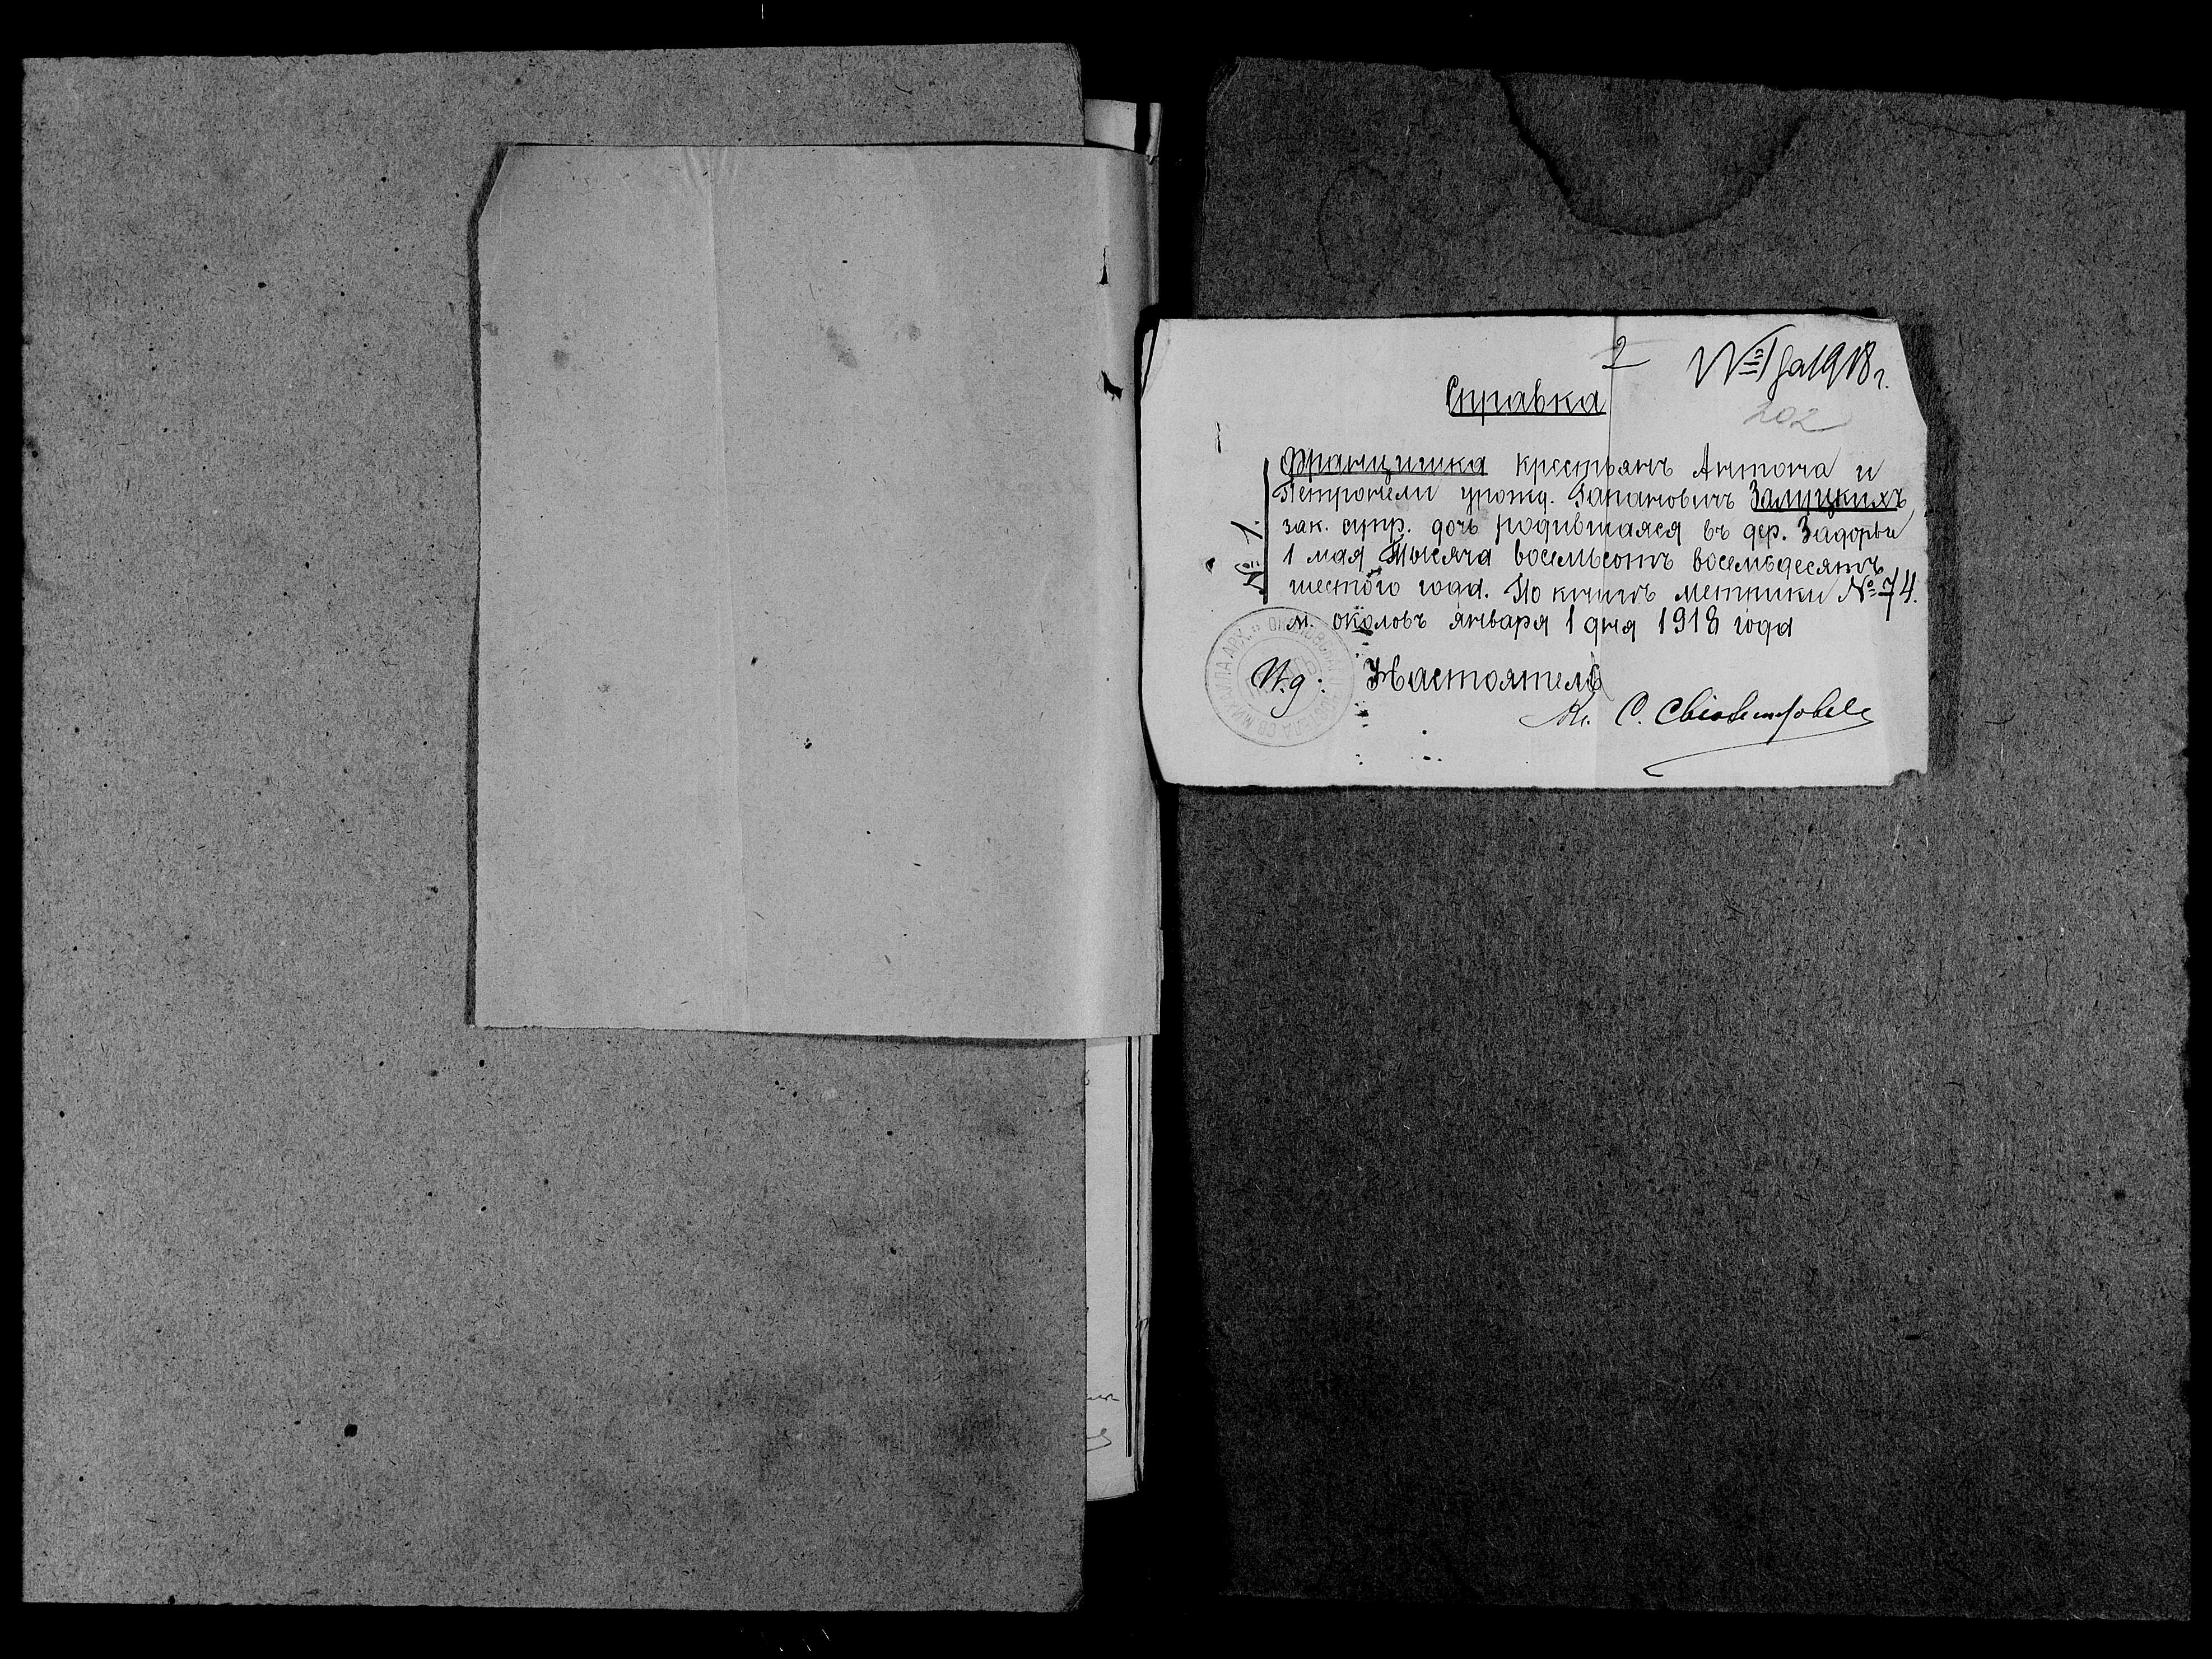 2 № 1 за 1918 г.
Справка
202
Францишка крестьянъ Антона и
Петронели урожд. Гапановичъ Залуцкихъ
зак. супр. дочь родившаяся въ дер. Задорьи
1 мая Тысяча восемьсотъ восемьдесятъ
шестого года. По книгѣ метрики № 74.
м. околовъ января 1 дня 1918 года
№ 1.
И.д. Настоятель
Кс. С.